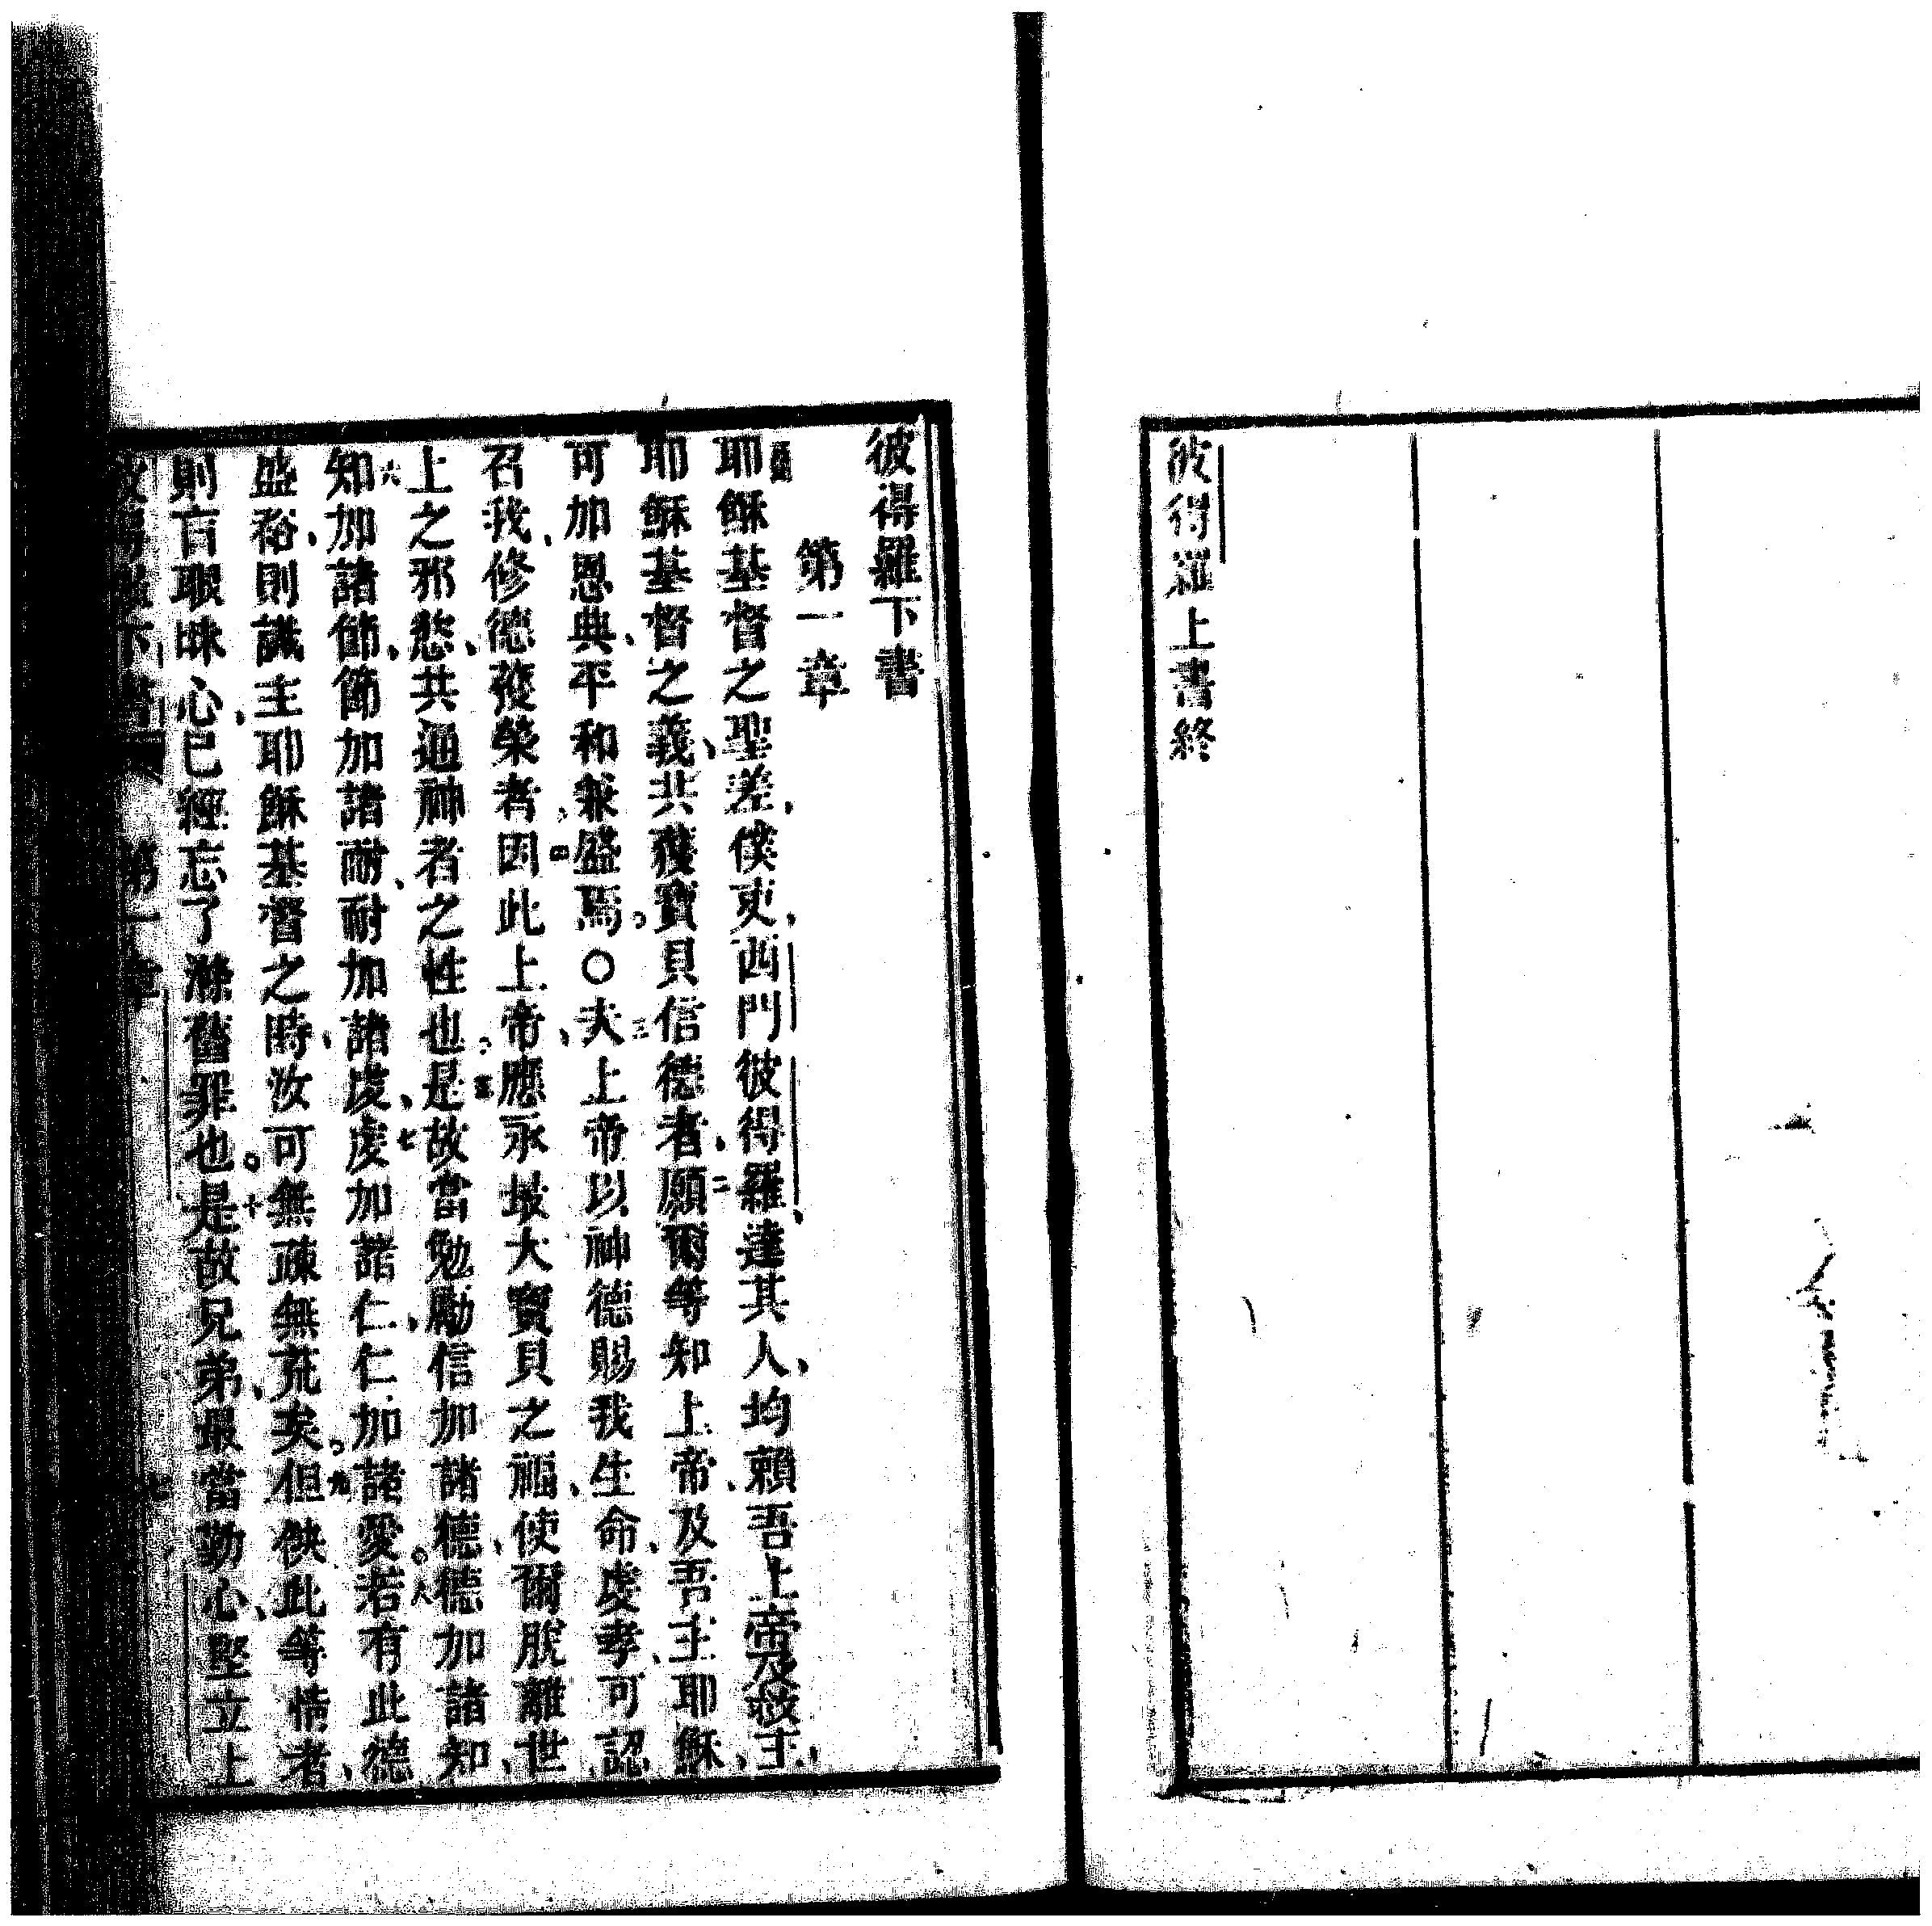 彼得羅上書終
彼得羅下書
第一章
耶穌基督之聖差、僕吏、西門彼得羅、達其人、均賴吾上帝及救主、
耶穌基督之義、共獲寶貝信德者、二願爾等知上帝、及吾主耶穌、
可加恩典、平和兼盛焉。○三夫上帝以神德賜我生命、虔孝、可認
召我、修德發榮者、四因此上帝、應永最大寶貝之福、使爾脫離世
上之邪慾、共通神者之性也。五是故當勉勵信加諸德、德加諸知、
六知加諸節、節加諸耐、耐加諸虔、七虔加諸仁、仁加諸愛。八若有此德
盛裕、則識主耶穌基督之時、汝可無疎無荒矣。九但缺此等情者、
則盲眼昧心、已經忘了滌舊罪也。十是故兄弟、最當勤心、堅立上
下書 第一章 七